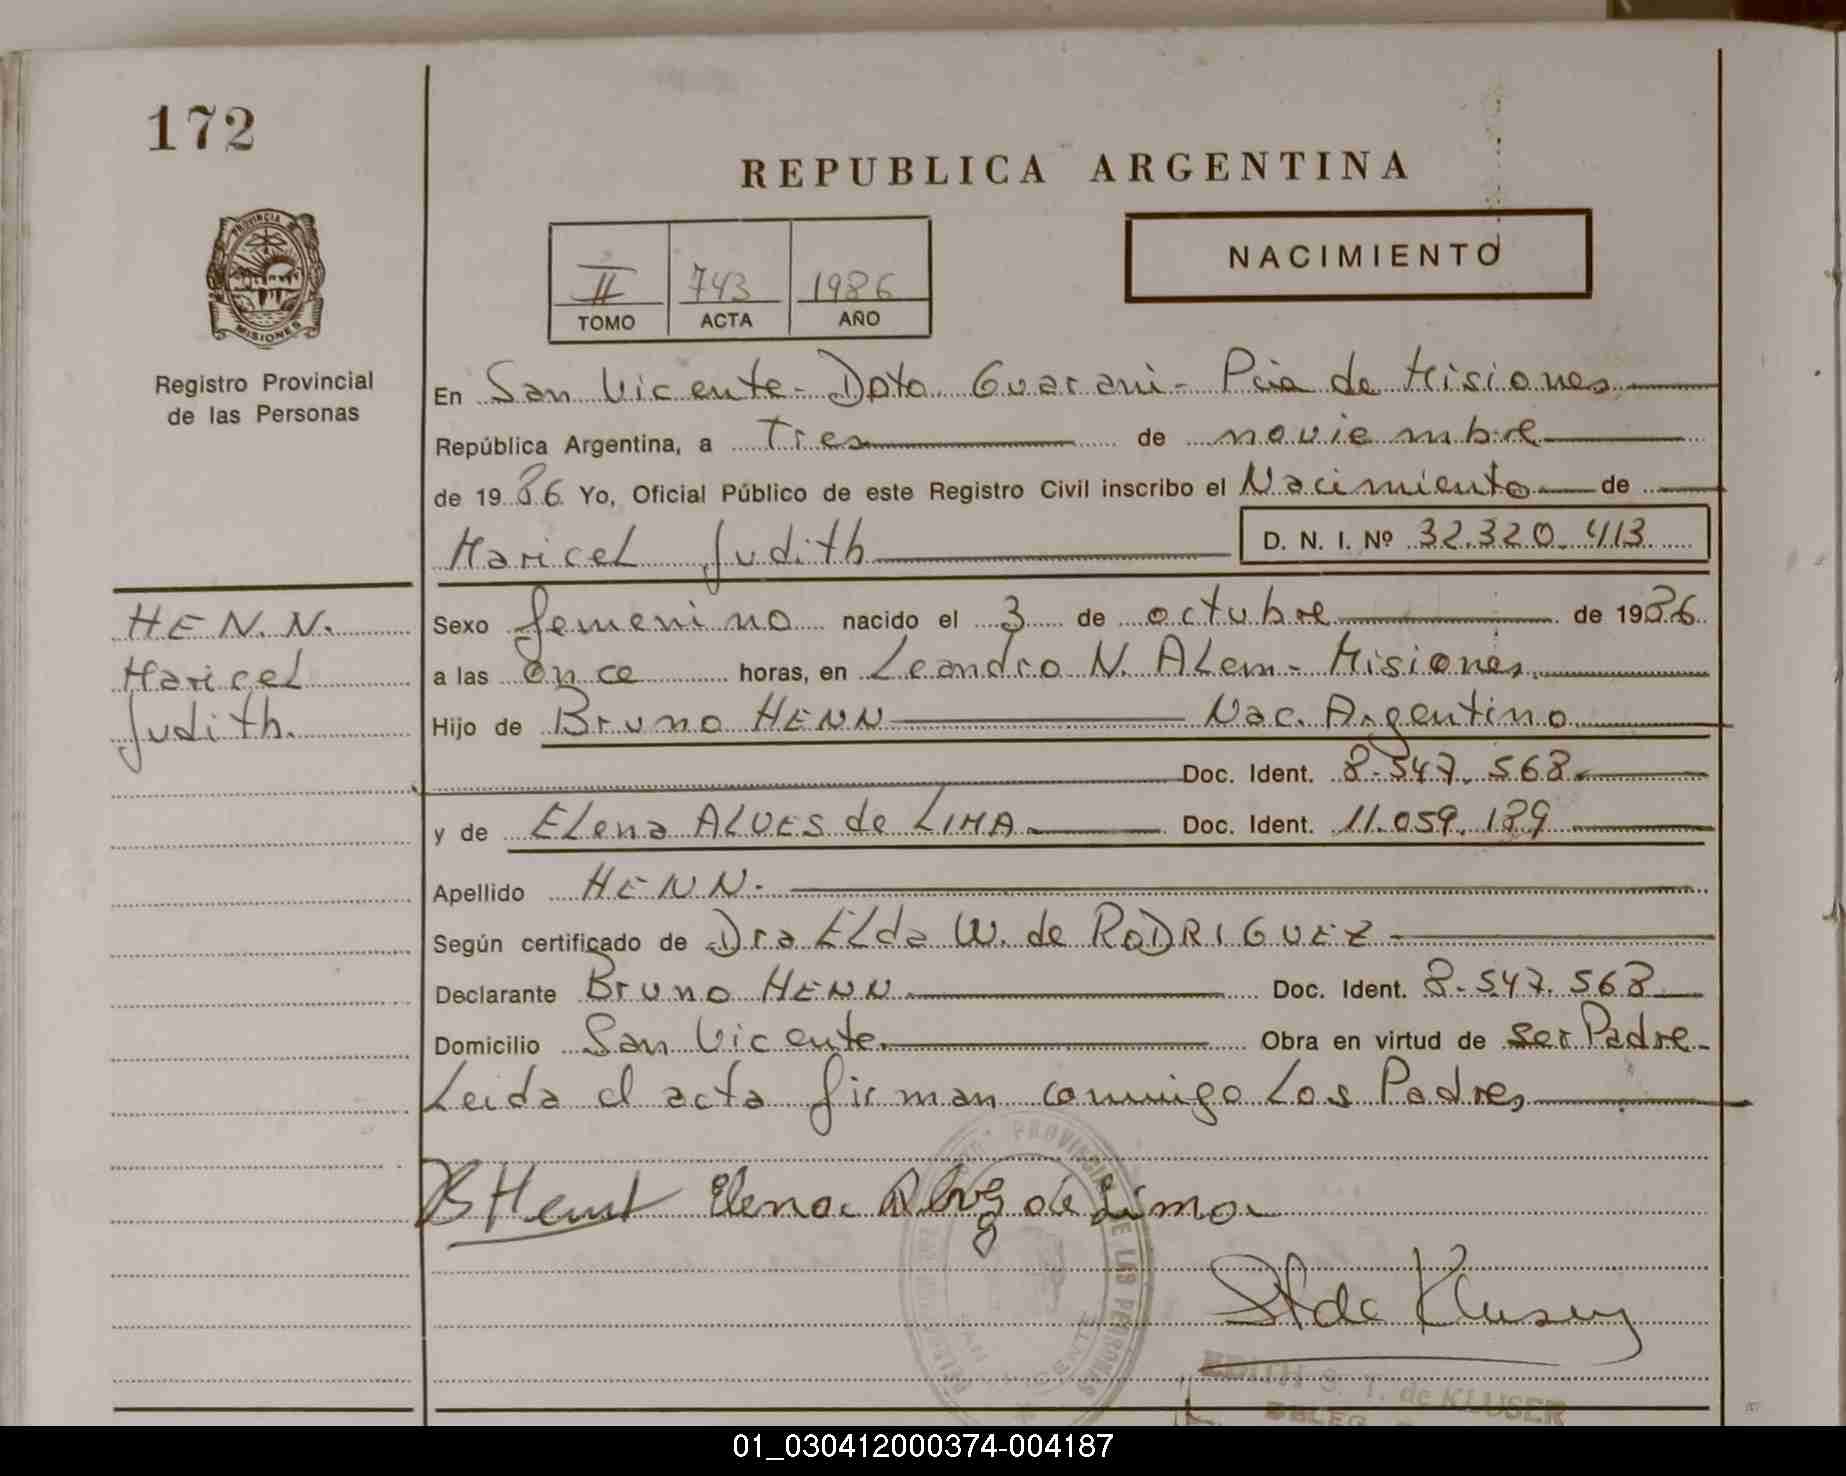 172
REPUBLICA ARGENTINA
PROVINCIA
MISIONES
II 743 1986
TOMO ACTA AÑO
NACIMIENTO
Registro Provincial
de las Personas
En San Vicente - Dpto Guarani - Pcia de Misiones
República Argentina, a Tres de noviembre
de 1986 Yo, Oficial Público de este Registro Civil inscribo el Nacimiento de
Maricel Judith D. N. I. Nº 32.320.413
HENN.
Maricel
Judith.
Sexo femenino nacido el 3 de octubre de 1986
a las once horas, en Leandro N. ALem - Misiones
Hijo de Bruno HENN Nac. Argentino
Doc. Ident. 8.547.568
y de ELena ALVES de LIMA Doc. Ident. 11.059.189
Apellido HENN.
Según certificado de Dra ELda W. de RODRIGUEZ
Declarante Bruno HENN Doc. Ident. 8.547.568
Domicilio San Vicente Obra en virtud de ser Padre
Leida el acta firman conmigo Los Padres
Elena de Lima
PROVINCIAL DE LAS PERSONAS
SAN VICENTE
de Kluser
EDITH S. T. de KLUSER
01_030412000374-004187